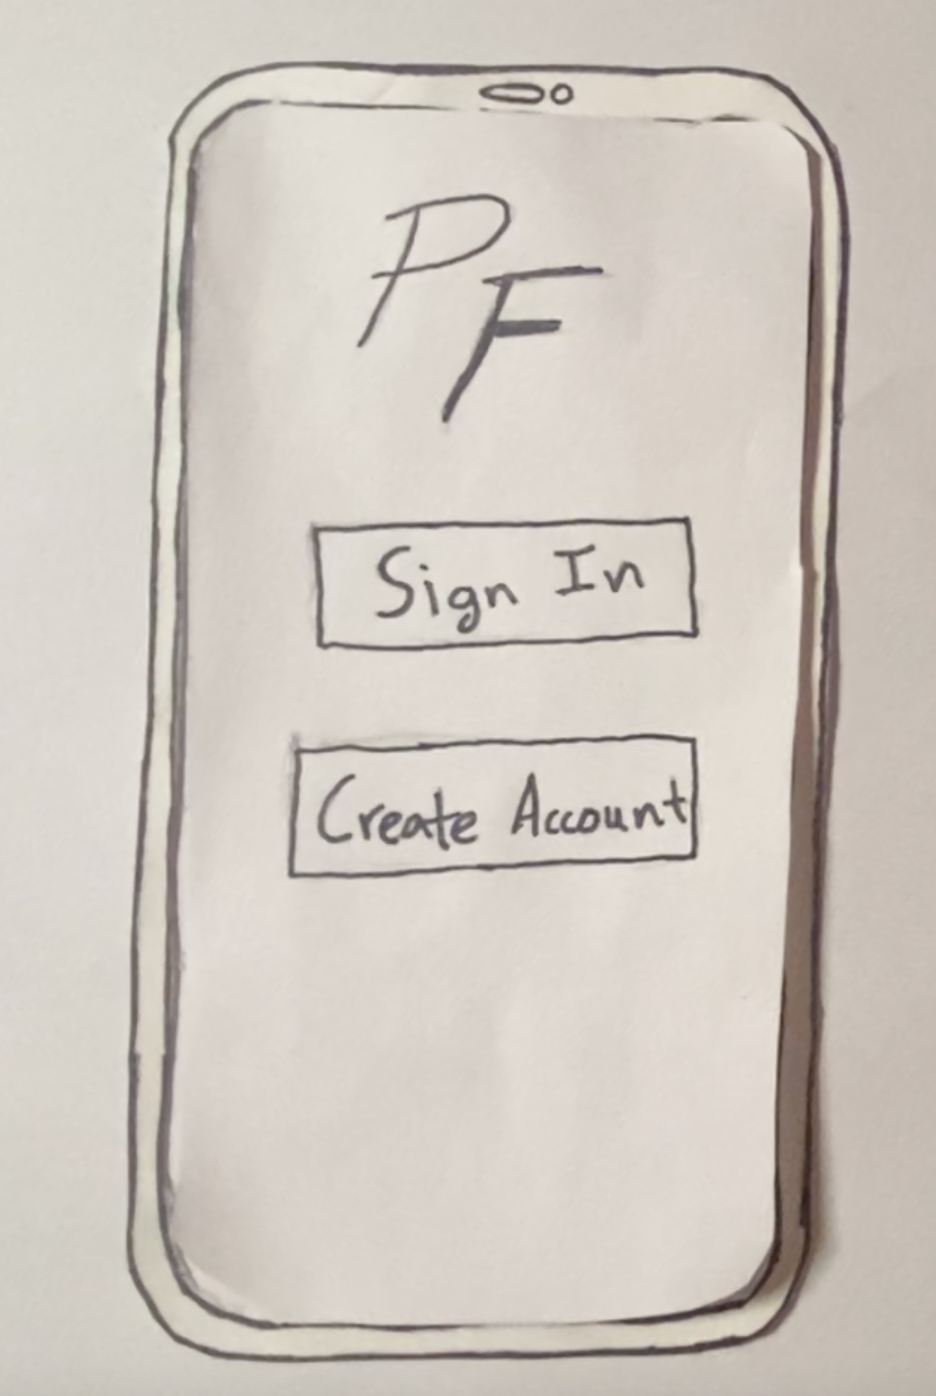 PF
Sign In
Create Account